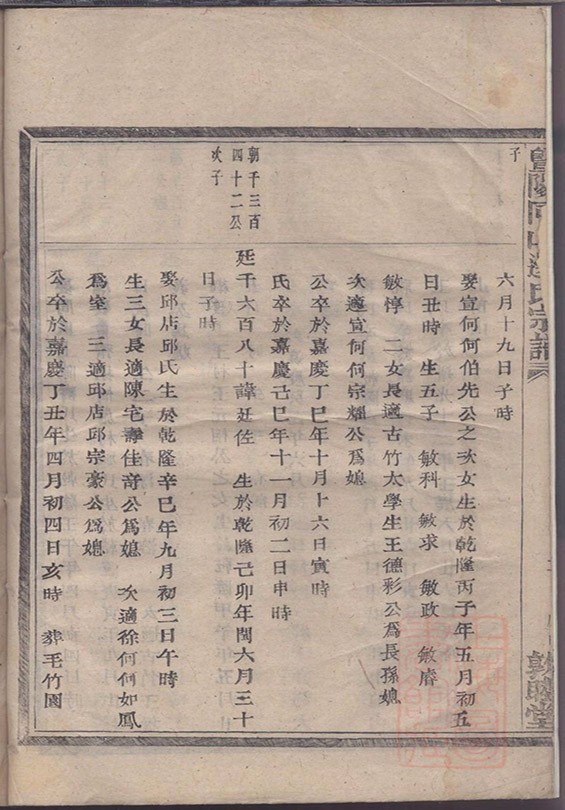 子
六月十九日子時
娶宣何何伯先公之次女生於乾隆丙子年五月初五
日丑時 生五子 敏科 敏求 敏政 敏睿
敏惇 二女長適古竹太學生王德彩公爲長孫媳
次適宣何何宗耀公爲媳
公卒於嘉慶丁巳年十月十六日寅時
氏卒於嘉慶己巳年十一月初二日申時
朝千三百
四十二公
次子
廷千六百八十諱廷佐 生於乾隆己卯年閏六月三十
日子時
娶邱店邱氏生於乾隆辛巳年九月初三日午時
生三女長適陳宅壽佳奇公爲媳 次適徐何何如鳳
爲室 三適邱店邱宗豪公爲媳
公卒於嘉慶丁丑年四月初四日亥時 葬毛竹園
氏宗譜
敦睦堂